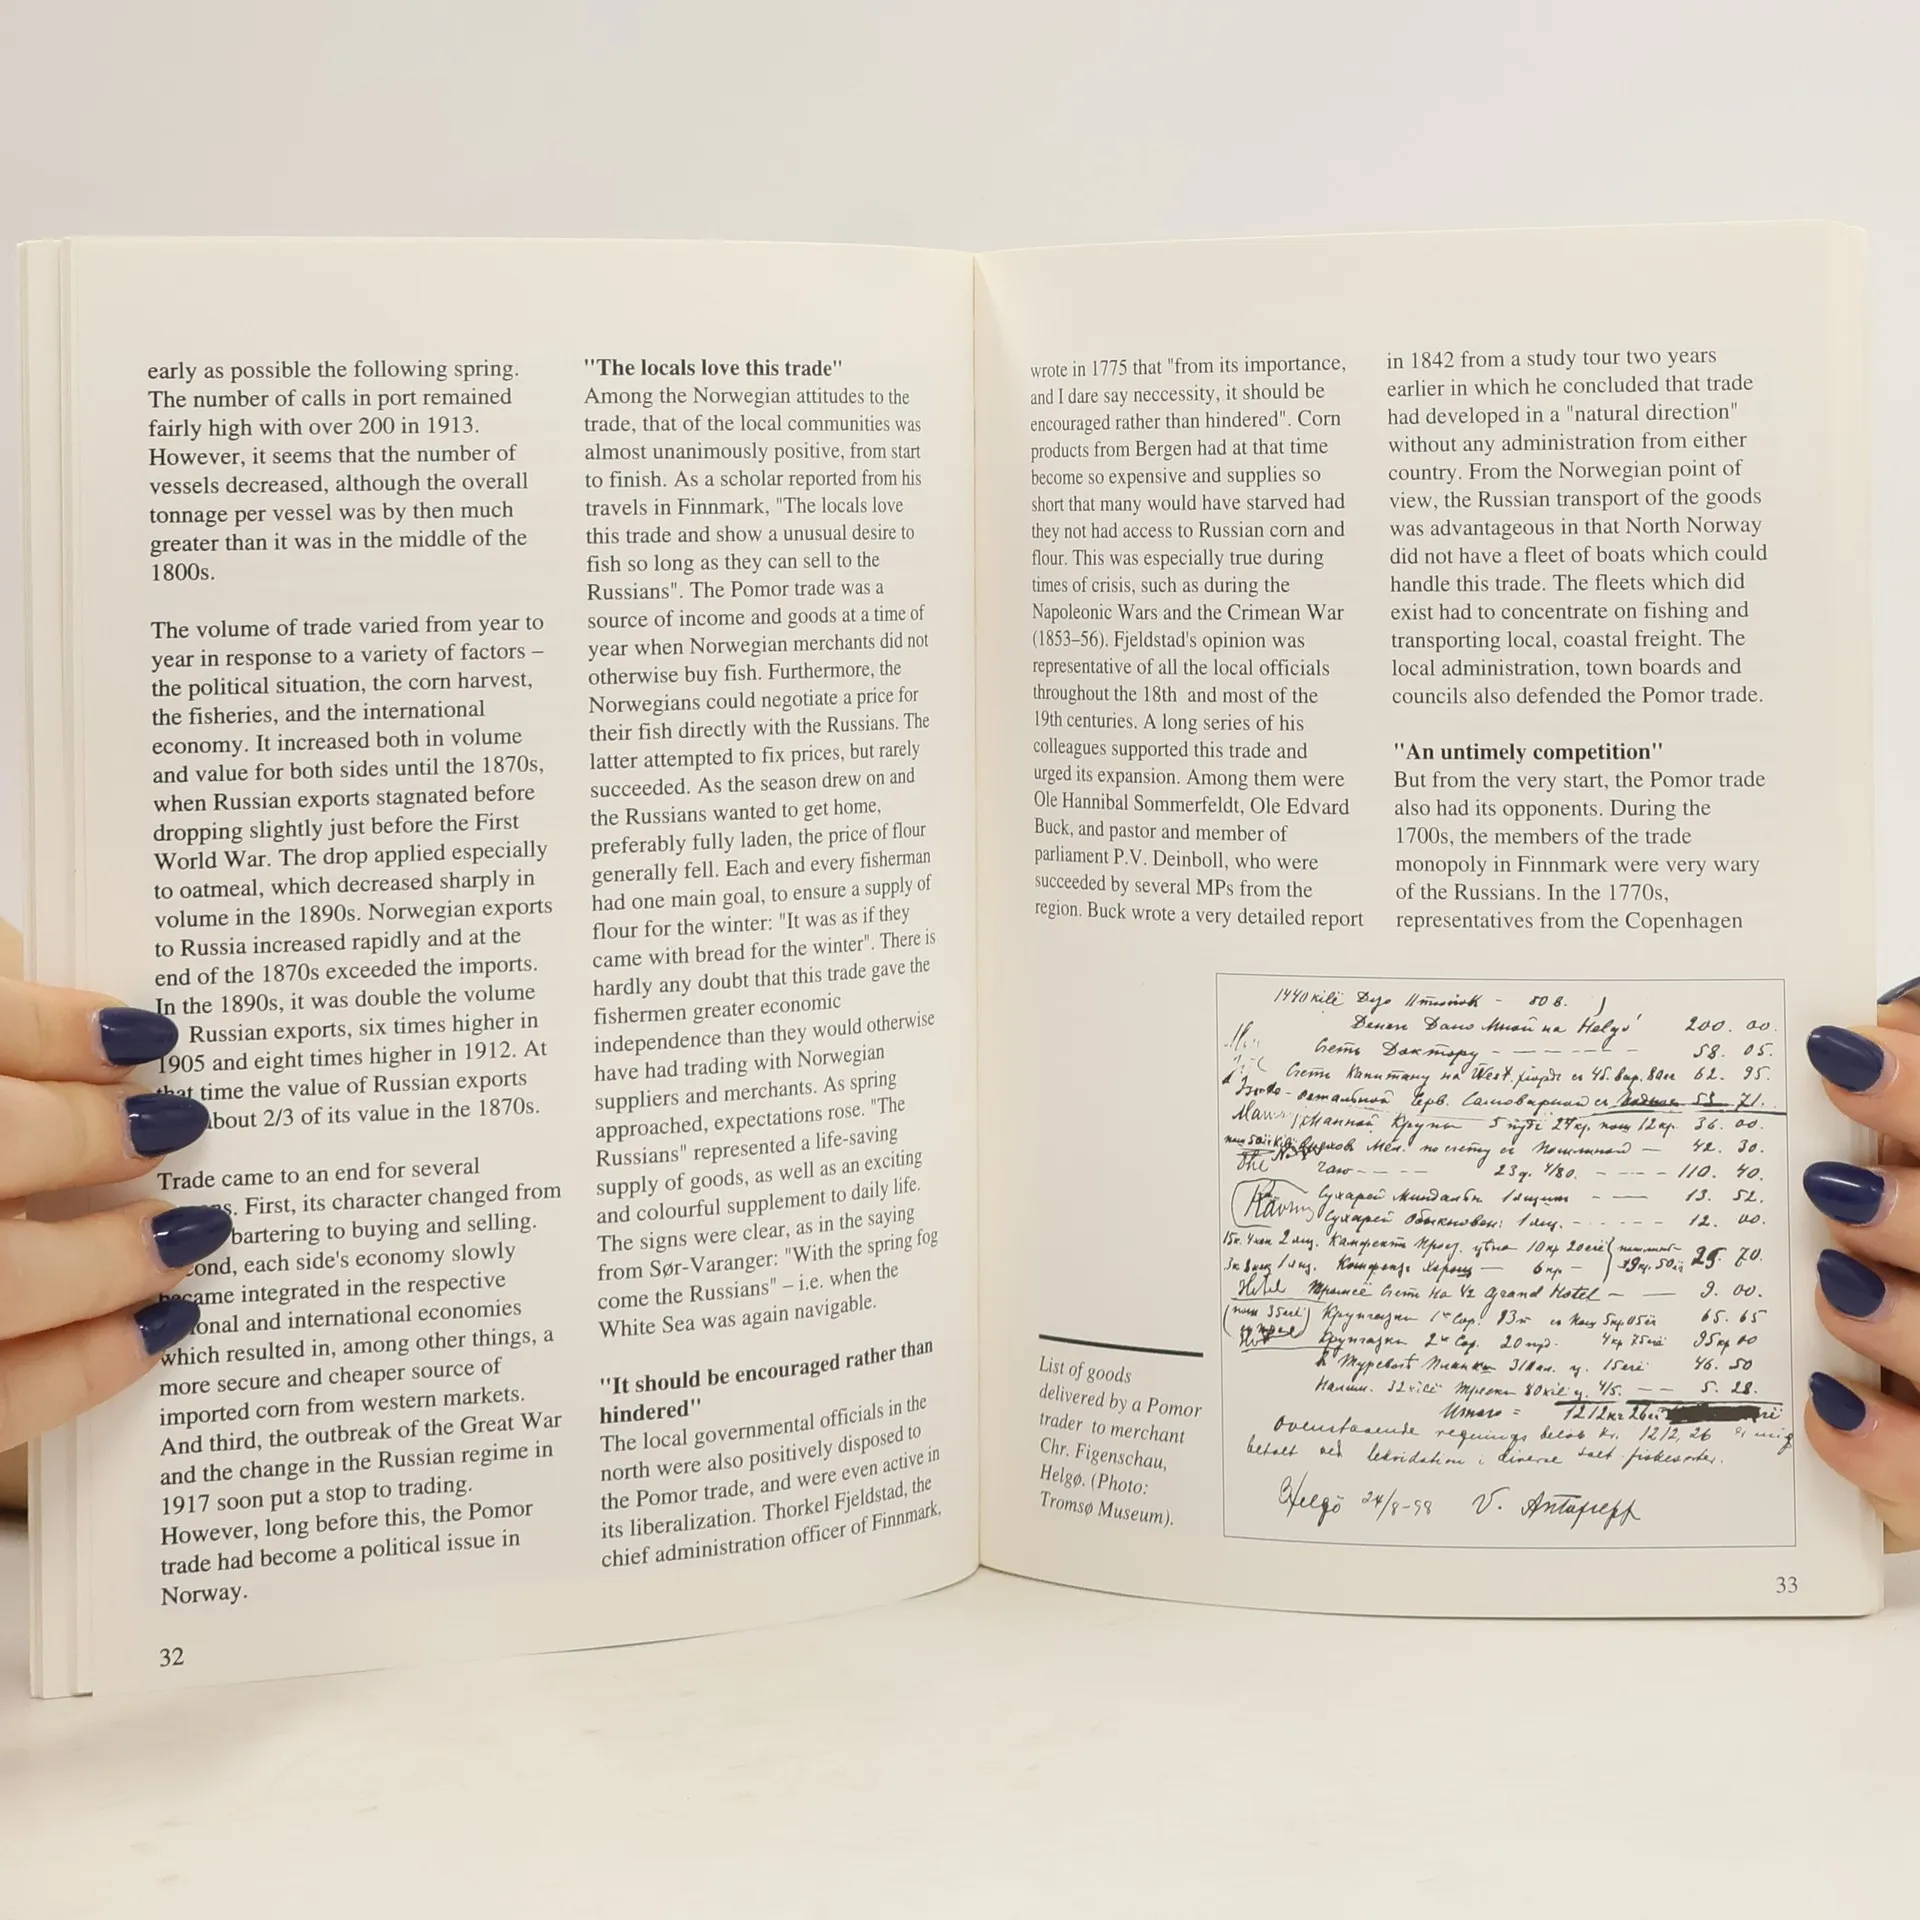 early as possible the following spring.
The number of calls in port remained
fairly high with over 200 in 1913.
However, it seems that the number of
vessels decreased, although the overall
tonnage per vessel was by then much
greater than it was in the middle of the
1800s.
The volume of trade varied from year to
year in response to a variety of factors –
the political situation, the corn harvest,
the fisheries, and the international
economy. It increased both in volume
and value for both sides until the 1870s,
when Russian exports stagnated before
dropping slightly just before the First
World War. The drop applied especially
to oatmeal, which decreased sharply in
volume in the 1890s. Norwegian exports
to Russia increased rapidly and at the
end of the 1870s exceeded the imports.
In the 1890s, it was double the volume
Russian exports, six times higher in
1905 and eight times higher in 1912. At
that time the value of Russian exports
about 2/3 of its value in the 1870s.
Trade came to an end for several
First, its character changed from
bartering to buying and selling.
each side's economy slowly
became integrated in the respective
and international economies
which resulted in, among other things, a
more secure and cheaper source of
imported corn from western markets.
And third, the outbreak of the Great War
and the change in the Russian regime in
1917 soon put a stop to trading.
However, long before this, the Pomor
trade had become a political issue in
Norway.
32
"The locals love this trade"
Among the Norwegian attitudes to the
trade, that of the local communities was
almost unanimously positive, from start
to finish. As a scholar reported from his
travels in Finnmark, "The locals love
this trade and show a unusual desire to
fish so long as they can sell to the
Russians". The Pomor trade was a
source of income and goods at a time of
year when Norwegian merchants did not
otherwise buy fish. Furthermore, the
Norwegians could negotiate a price for
their fish directly with the Russians. The
latter attempted to fix prices, but rarely
succeeded. As the season drew on and
the Russians wanted to get home,
preferably fully laden, the price of flour
generally fell. Each and every fisherman
had one main goal, to ensure a supply of
flour for the winter: "It was as if they
came with bread for the winter". There is
hardly any doubt that this trade gave the
fishermen greater economic
independence than they would otherwise
have had trading with Norwegian
suppliers and merchants. As spring
approached, expectations rose. "The
Russians" represented a life-saving
supply of goods, as well as an exciting
and colourful supplement to daily life.
The signs were clear, as in the saying
from Sør-Varanger: "With the spring fog
come the Russians" – i.e. when the
White Sea was again navigable.
"It should be encouraged rather than
hindered"
The local governmental officials in the
north were also positively disposed to
the Pomor trade, and were even active in
its liberalization. Thorkel Fjeldstad, the
chief administration officer of Finnmark,
wrote in 1775 that "from its importance,
and I dare say neccessity, it should be
encouraged rather than hindered". Corn
products from Bergen had at that time
become so expensive and supplies so
short that many would have starved had
they not had access to Russian corn and
flour. This was especially true during
times of crisis, such as during the
Napoleonic Wars and the Crimean War
(1853–56). Fjeldstad's opinion was
representative of all the local officials
throughout the 18th and most of the
19th centuries. A long series of his
colleagues supported this trade and
urged its expansion. Among them were
Ole Hannibal Sommerfeldt, Ole Edvard
Buck, and pastor and member of
parliament P.V. Deinboll, who were
succeeded by several MPs from the
region. Buck wrote a very detailed report
in 1842 from a study tour two years
earlier in which he concluded that trade
had developed in a "natural direction"
without any administration from either
country. From the Norwegian point of
view, the Russian transport of the goods
was advantageous in that North Norway
did not have a fleet of boats which could
handle this trade. The fleets which did
exist had to concentrate on fishing and
transporting local, coastal freight. The
local administration, town boards and
councils also defended the Pomor trade.
"An untimely competition"
But from the very start, the Pomor trade
also had its opponents. During the
1700s, the members of the trade
monopoly in Finnmark were very wary
of the Russians. In the 1770s,
representatives from the Copenhagen
List of goods
delivered by a Pomor
trader to merchant
Chr. Figenschau,
Helgø. (Photo:
Tromsø Museum).
200. 00.
58. 05.
62. 95.
53 71.
36. 00.
42. 30.
110. 40.
13. 52.
12. 00.
70.
Grand Hotel 9. 00.
65. 65
46. 50
5. 28.
Helgö 24/8-98
33